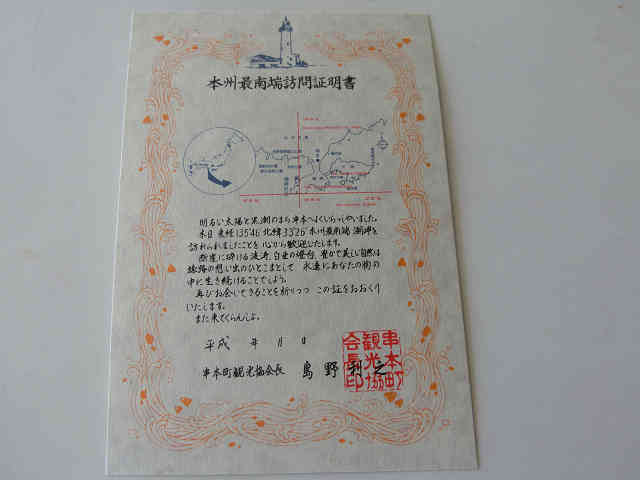 本州最南端訪問証明書
明るい太陽と黒潮のまち串本へよくいらっしゃいました。
本日 東経135°46′ 北緯33°26′ 本州最南端 潮岬を
訪れられましたことを 心から歓迎いたします。
断崖に砕ける波涛、白亜の燈台、豊かで美しい自然は
旅路の想い出のひとこまとして 永遠にあなたの胸の
中に生き続けることでしょう。
再びお会いできることを祈りつつ この証をおおくり
いたします。
また来てくらんしよ。
平成 年 月 日
串本町観光協会長 島野利之
串本町
観光協
会長印